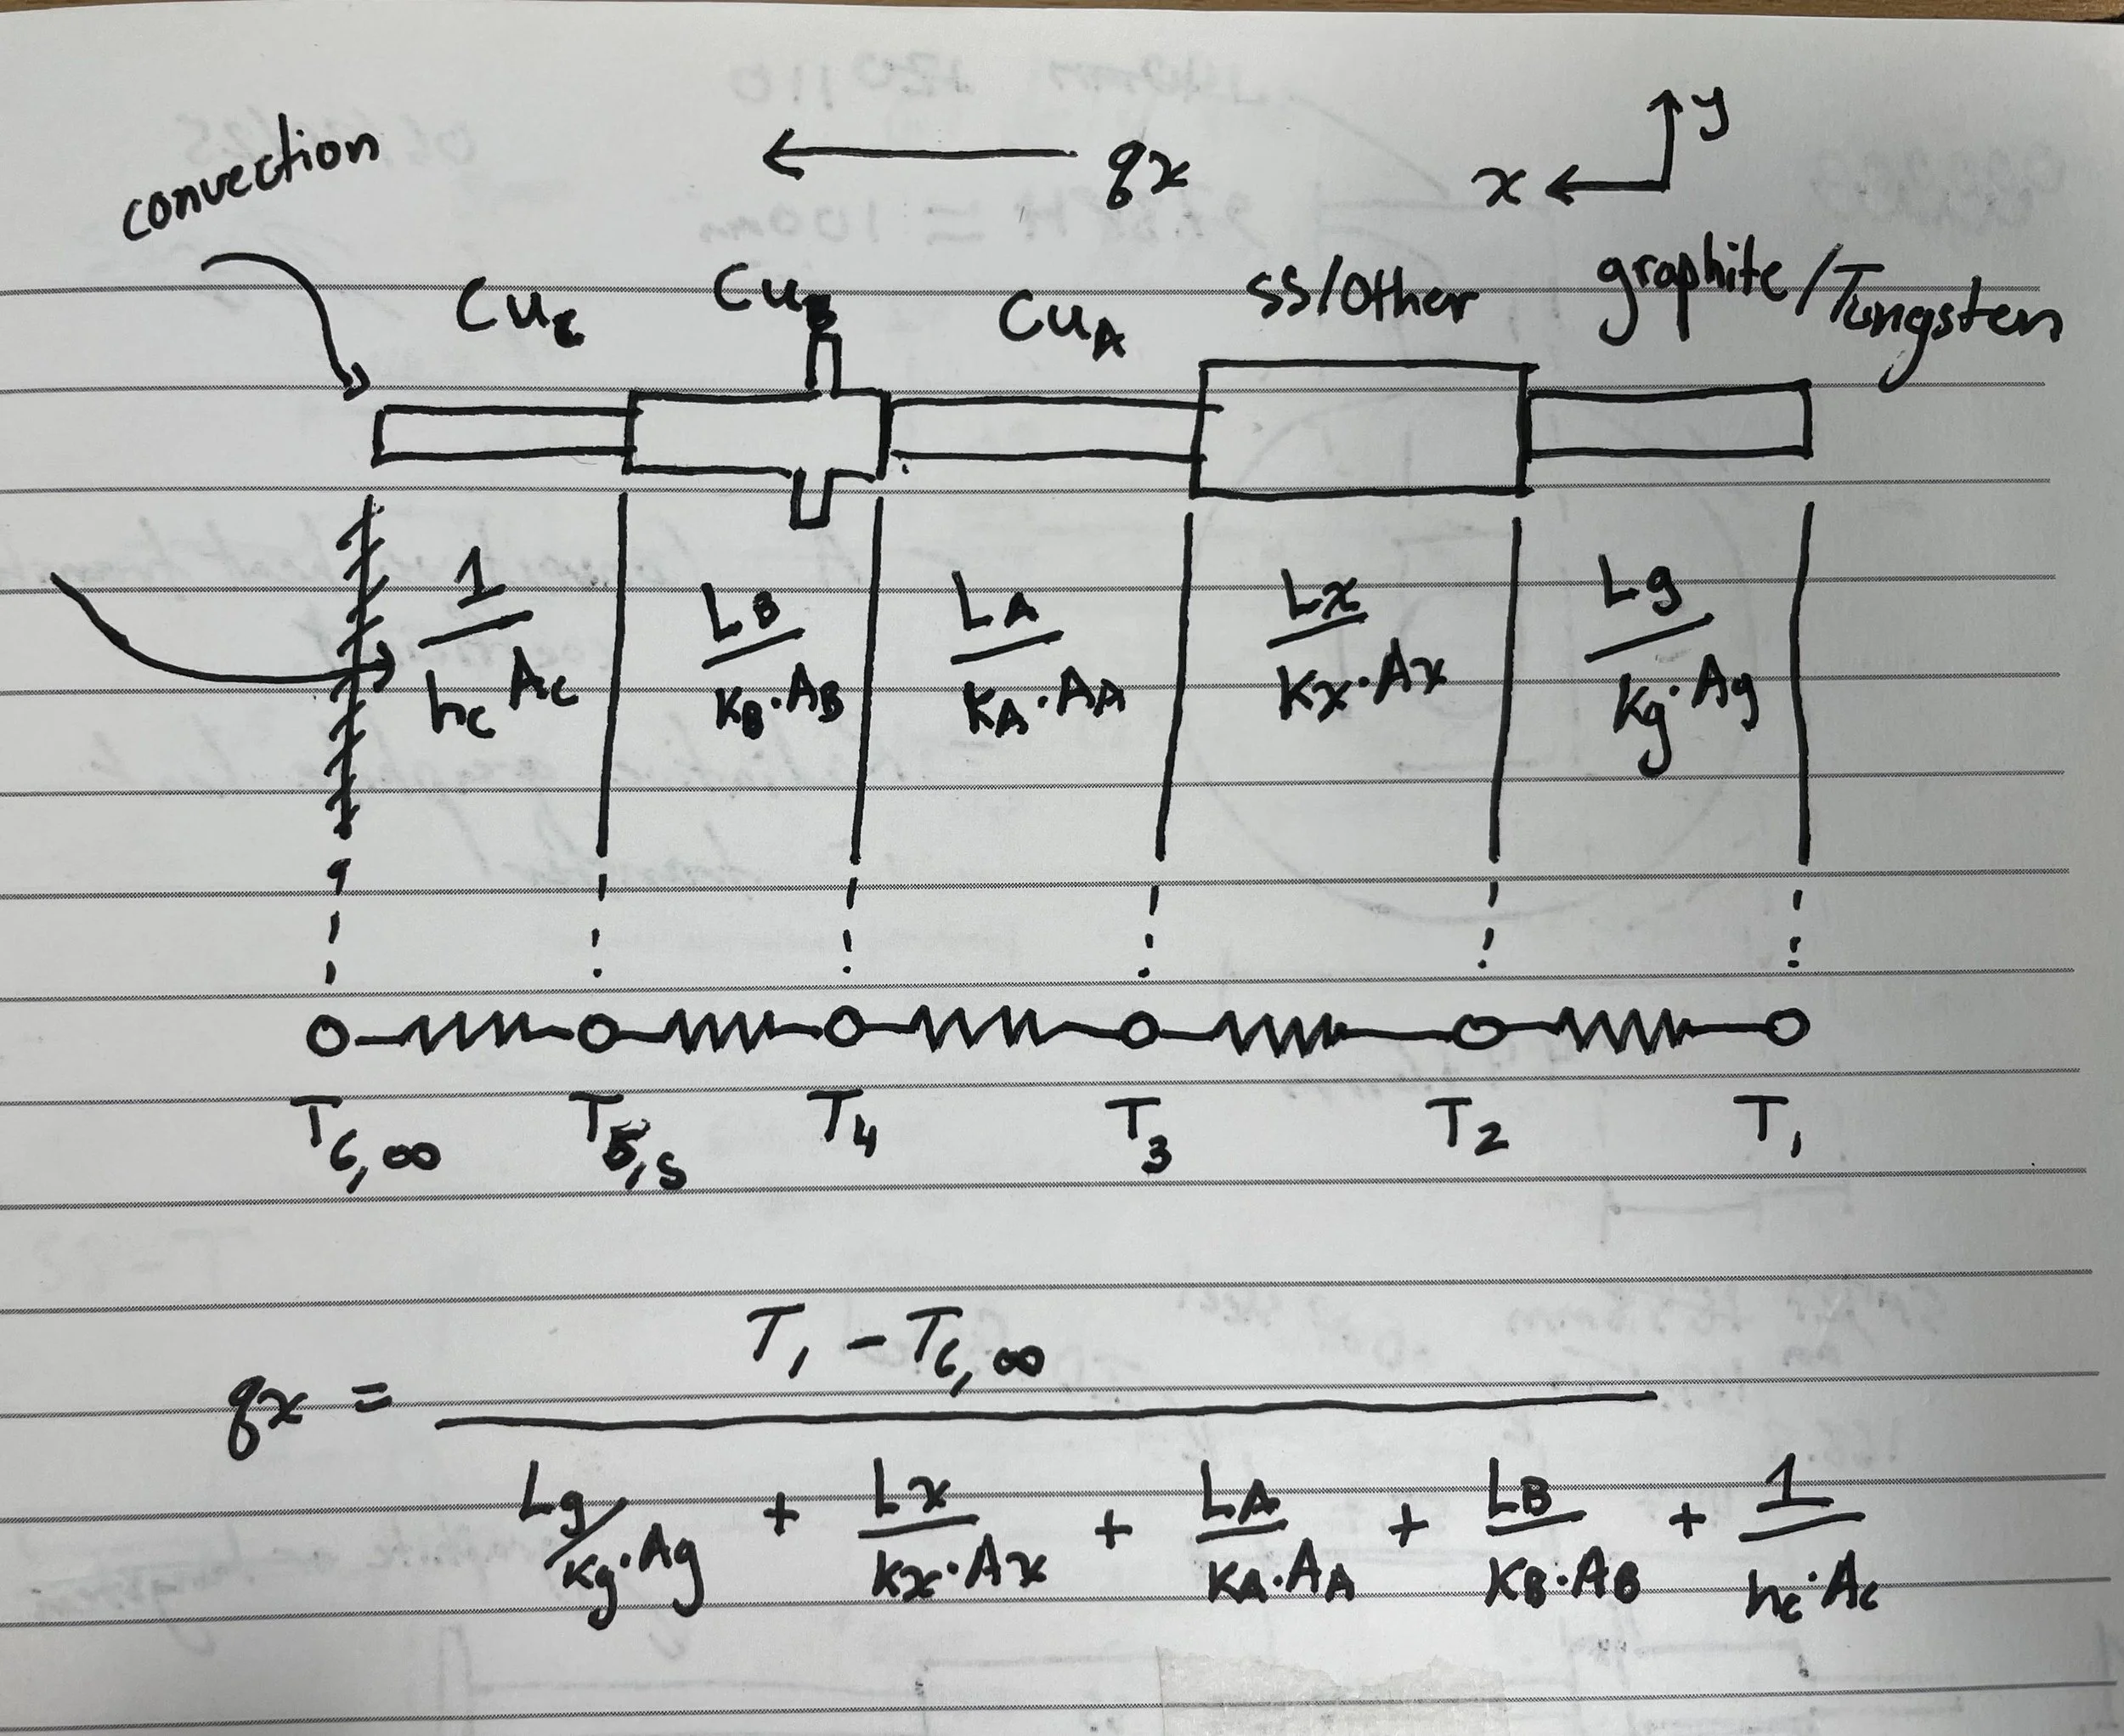 convection
← qx
x ← ↑ y
Cuc CuB CuA SS/Other graphite/Tungsten
1/(hc Ac) LB/(KB·AB) LA/(KA·AA) Lx/(Kx·Ax) Lg/(Kg·Ag)
T6,∞ T5,s T4 T3 T2 T1
qx = (T1 - T6,∞) / (Lg/(Kg·Ag) + Lx/(Kx·Ax) + LA/(KA·AA) + LB/(KB·AB) + 1/(hc·Ac))